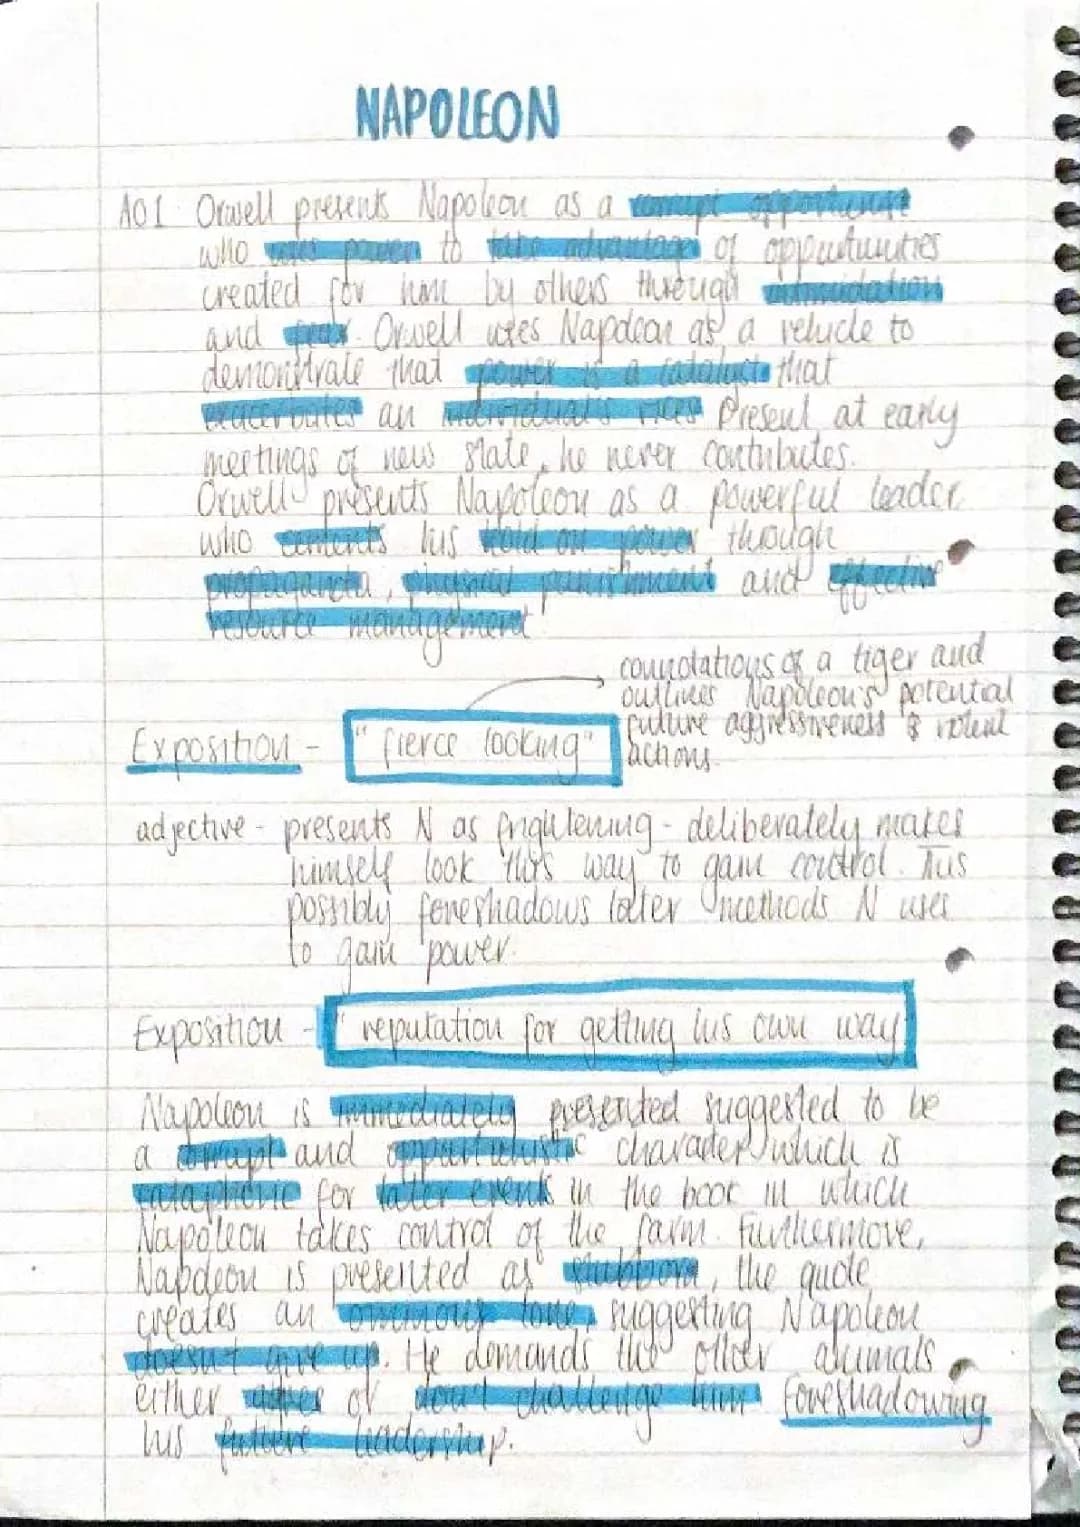 NAPOLEON
AO1 Orwell presents Napoleon as a corrupt opportunist
who uses power to take advantage of opportunities
created for him by others through intimidation
and fear. Orwell uses Napoleon as a vehicle to
demonstrate that power is a catalyst that
exacerbates an individual's vices Present at early
meetings of new state, he never contributes.
Orwell presents Napoleon as a powerful leader
who cements his hold on power through
propaganda, physical punishment and effective
resource management
connotations of a tiger and
outlines Napoleon's potential
future aggressiveness & violent
actions.
Exposition - "fierce looking"
adjective - presents N as frightening - deliberately makes
himself look this way to gain control. This
possibly foreshadows later methods N uses
to gain power.
Exposition - "reputation for getting his own way
Napoleon is immediately presented suggested to be
a corrupt and opportunistic character which is
cataphoric for later events in the book in which
Napoleon takes control of the farm. Furthermore,
Napoleon is presented as stubborn, the quote
creates an ominous tone suggesting Napoleon
doesn't give up. He demands the other animals
either agree or don't challenge him foreshadowing
his future leadership.